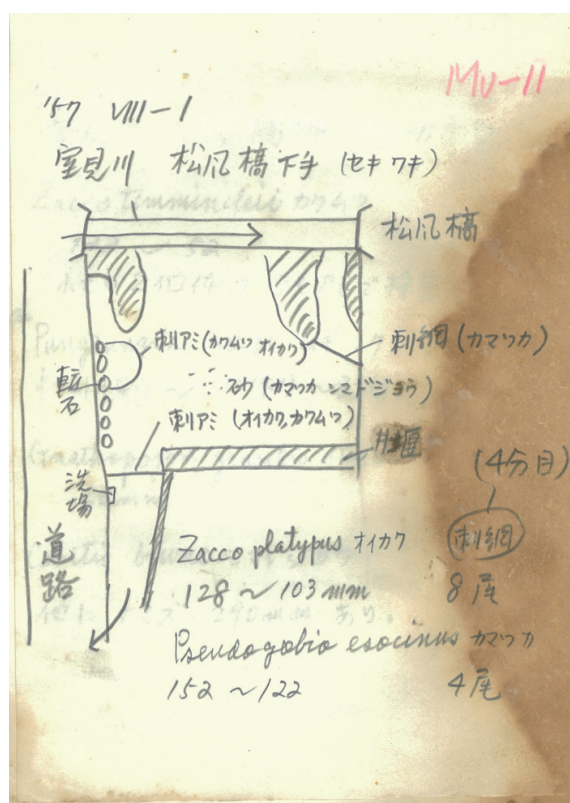 Mu-11
'57 VIII-1
室見川 松風橋下手 (セキワキ)
松風橋
刺アミ(カワムツ オイカワ)
刺網 (カマツカ)
転石
砂 (カマツカ シマドジョウ)
刺アミ (オイカワ,カワムツ)
井堰
(4分目)
洗場
道路
刺網
Zacco platypus オイカワ
128~103mm 8尾
Pseudogobio esocinus カマツカ
152~122 4尾